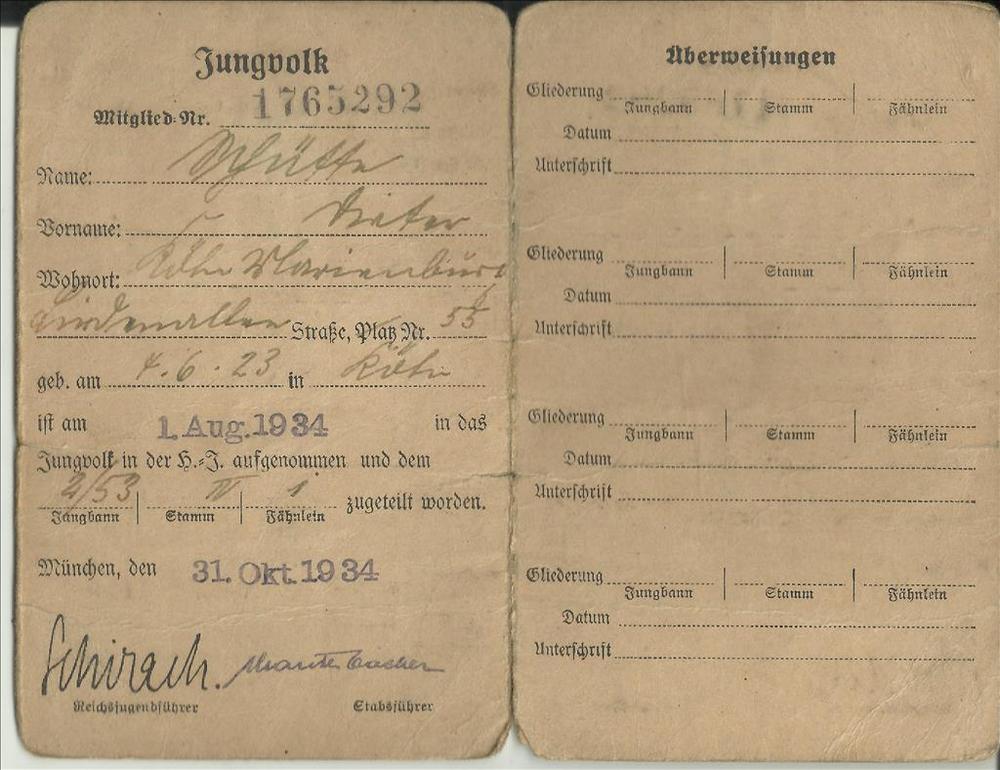 Jungvolk
Mitglied-Nr. 1765292
Name: Schütte
Vorname: Dieter
Wohnort: Köln Marienburg
Lindenallee Straße, Platz Nr. 55
geb. am 4.6.23 in Köln
ist am 1. Aug. 1934 in das
Jungvolk in der H.-J. aufgenommen und dem
2/53 IV 1 zugeteilt worden.
Jungbann Stamm Fähnlein
München, den 31. Okt. 1934
Schirach.
Reichsjugendführer Stabsführer
Überweisungen
Gliederung
Jungbann Stamm Fähnlein
Datum
Unterschrift
Gliederung
Jungbann Stamm Fähnlein
Datum
Unterschrift
Gliederung
Jungbann Stamm Fähnlein
Datum
Unterschrift
Gliederung
Jungbann Stamm Fähnlein
Datum
Unterschrift